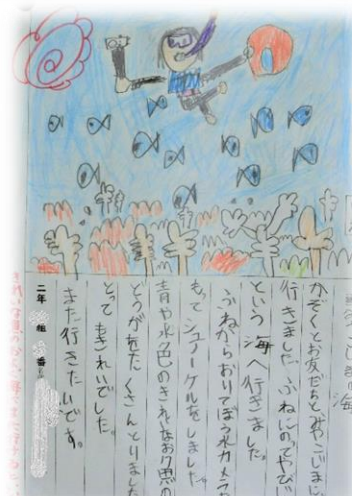 の海
かぞくとお友だちと、みやこじまに
行きました。ふねにのってやび
という海へ行きました。
ふねからおりてぼう水カメラ
もってシュノーケルをしました。
青や水色のきれいなお魚の
どうがをたくさんとりました
とってもきれいでした。
また行きたいです。
二年 組 番